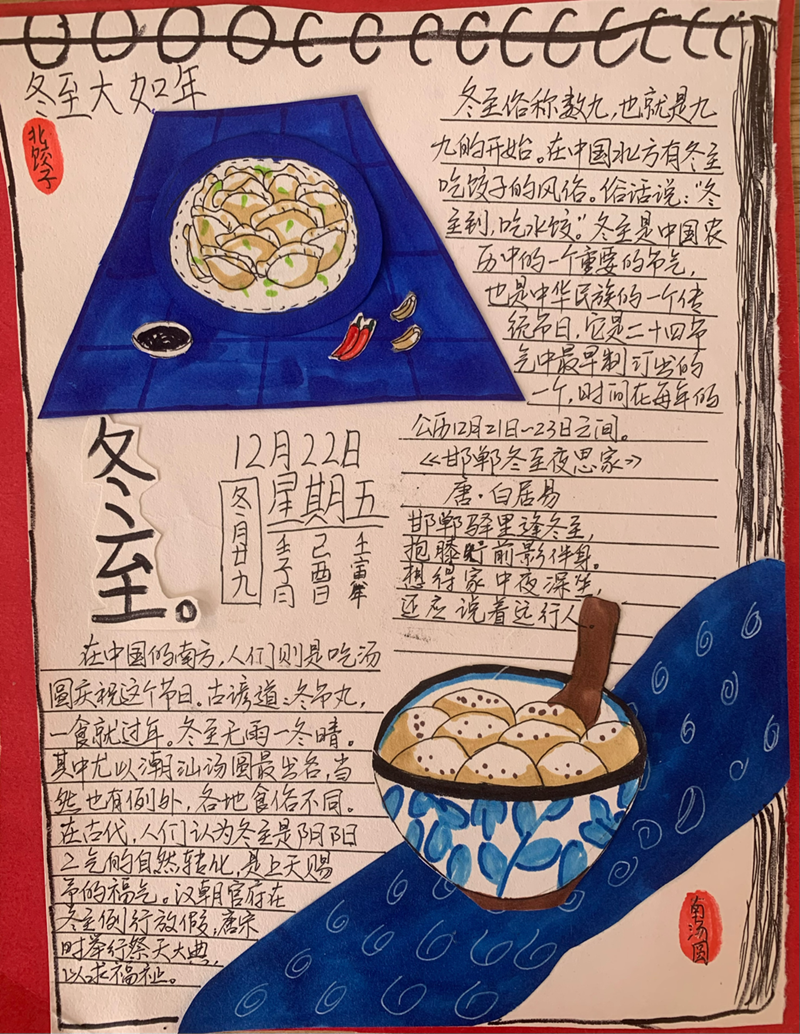 冬至大如年
北饺子
冬至俗称数九,也就是九
九的开始。在中国北方有冬至
吃饺子的风俗。俗话说:“冬
至到,吃水饺。”冬至是中国农
历中的一个重要的节气,
也是中华民族的一个传
统节日,它是二十四节
气中最早制订出的
一个,时间在每年的
公历12月21日~23日之间。
《邯郸冬至夜思家》
唐·白居易
邯郸驿里逢冬至,
抱膝 前影伴身。
想得家中夜深坐,
还应说着远行人
冬至。
12月22日
星期五
冬月廿九
壬子月
己酉日
壬寅年
在中国的南方,人们则是吃汤
圆庆祝这个节日。古谚道:冬节丸,
一食就过年。冬至无雨一冬晴。
其中尤以潮汕汤圆最出名,当
然也有例外,各地食俗不同。
在古代,人们认为冬至是阴阳
二气的自然转化,是上天赐
节的福气。汉朝官府在
冬至例行放假,唐宋
时举行祭天大典,
以求福祉。
南汤圆